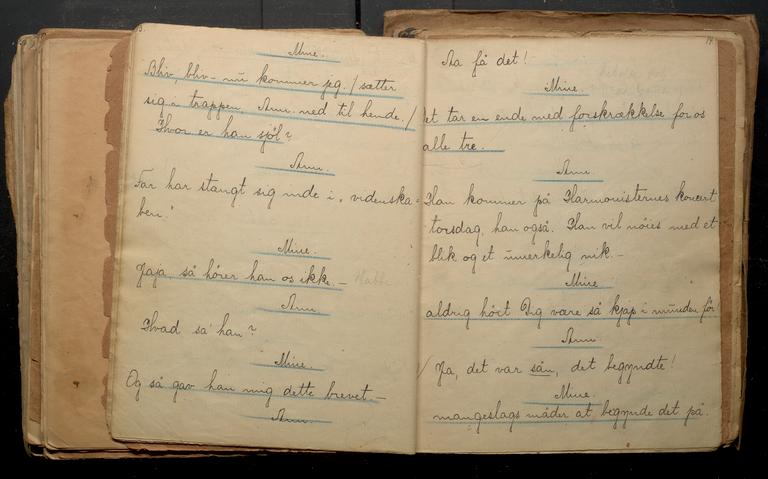 3.
Mine.
Bliv, bliv – nu kommer jeg. / sætter
sig i trappen. Ann ned til hende. /
Hvor er han sjøl?
Ann.
Far har stængt sig inde i „videnska-
ben."
Mine.
Jaja, så hører han os ikke. –
Ann
Hvad sa' han?
Mine.
Og så gav han mig dette brevet –
Ann.
14
Aa få det!
Mine.
Det tar en ende med forskrækkelse for os
alle tre.
Ann
Han kommer på Harmonisternes koncert
torsdag, han også. Han vil nøies med et
blik og et umerkelig nik. –
Mine
aldrig hørt Dig være så kjap i munden før!
Ann
Ja, det var sån, det begyndte!
Mine.
mangeslags måder at begynde det på.